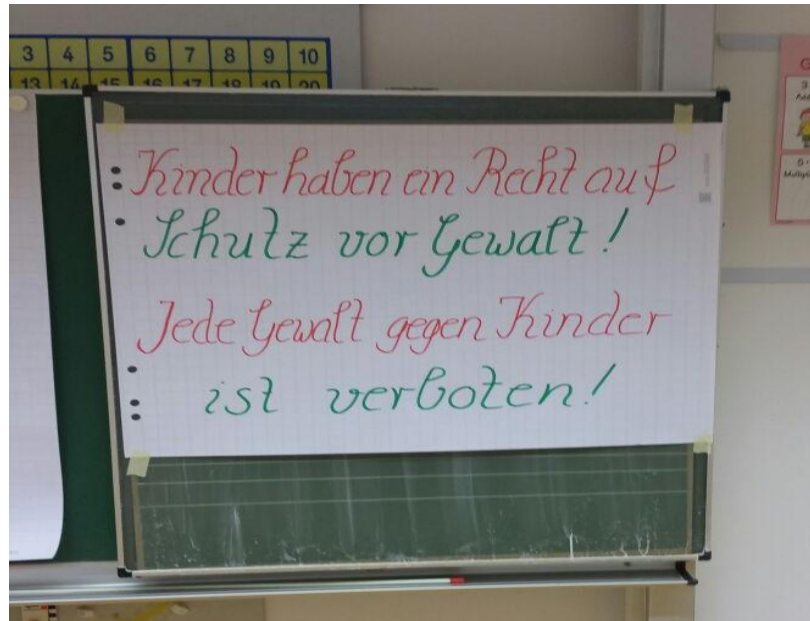 3 4 5 6 7 8 9 10
13 14 15 16 17 18 19 20
Kinder haben ein Recht auf
Schutz vor Gewalt!
Jede Gewalt gegen Kinder
ist verboten!